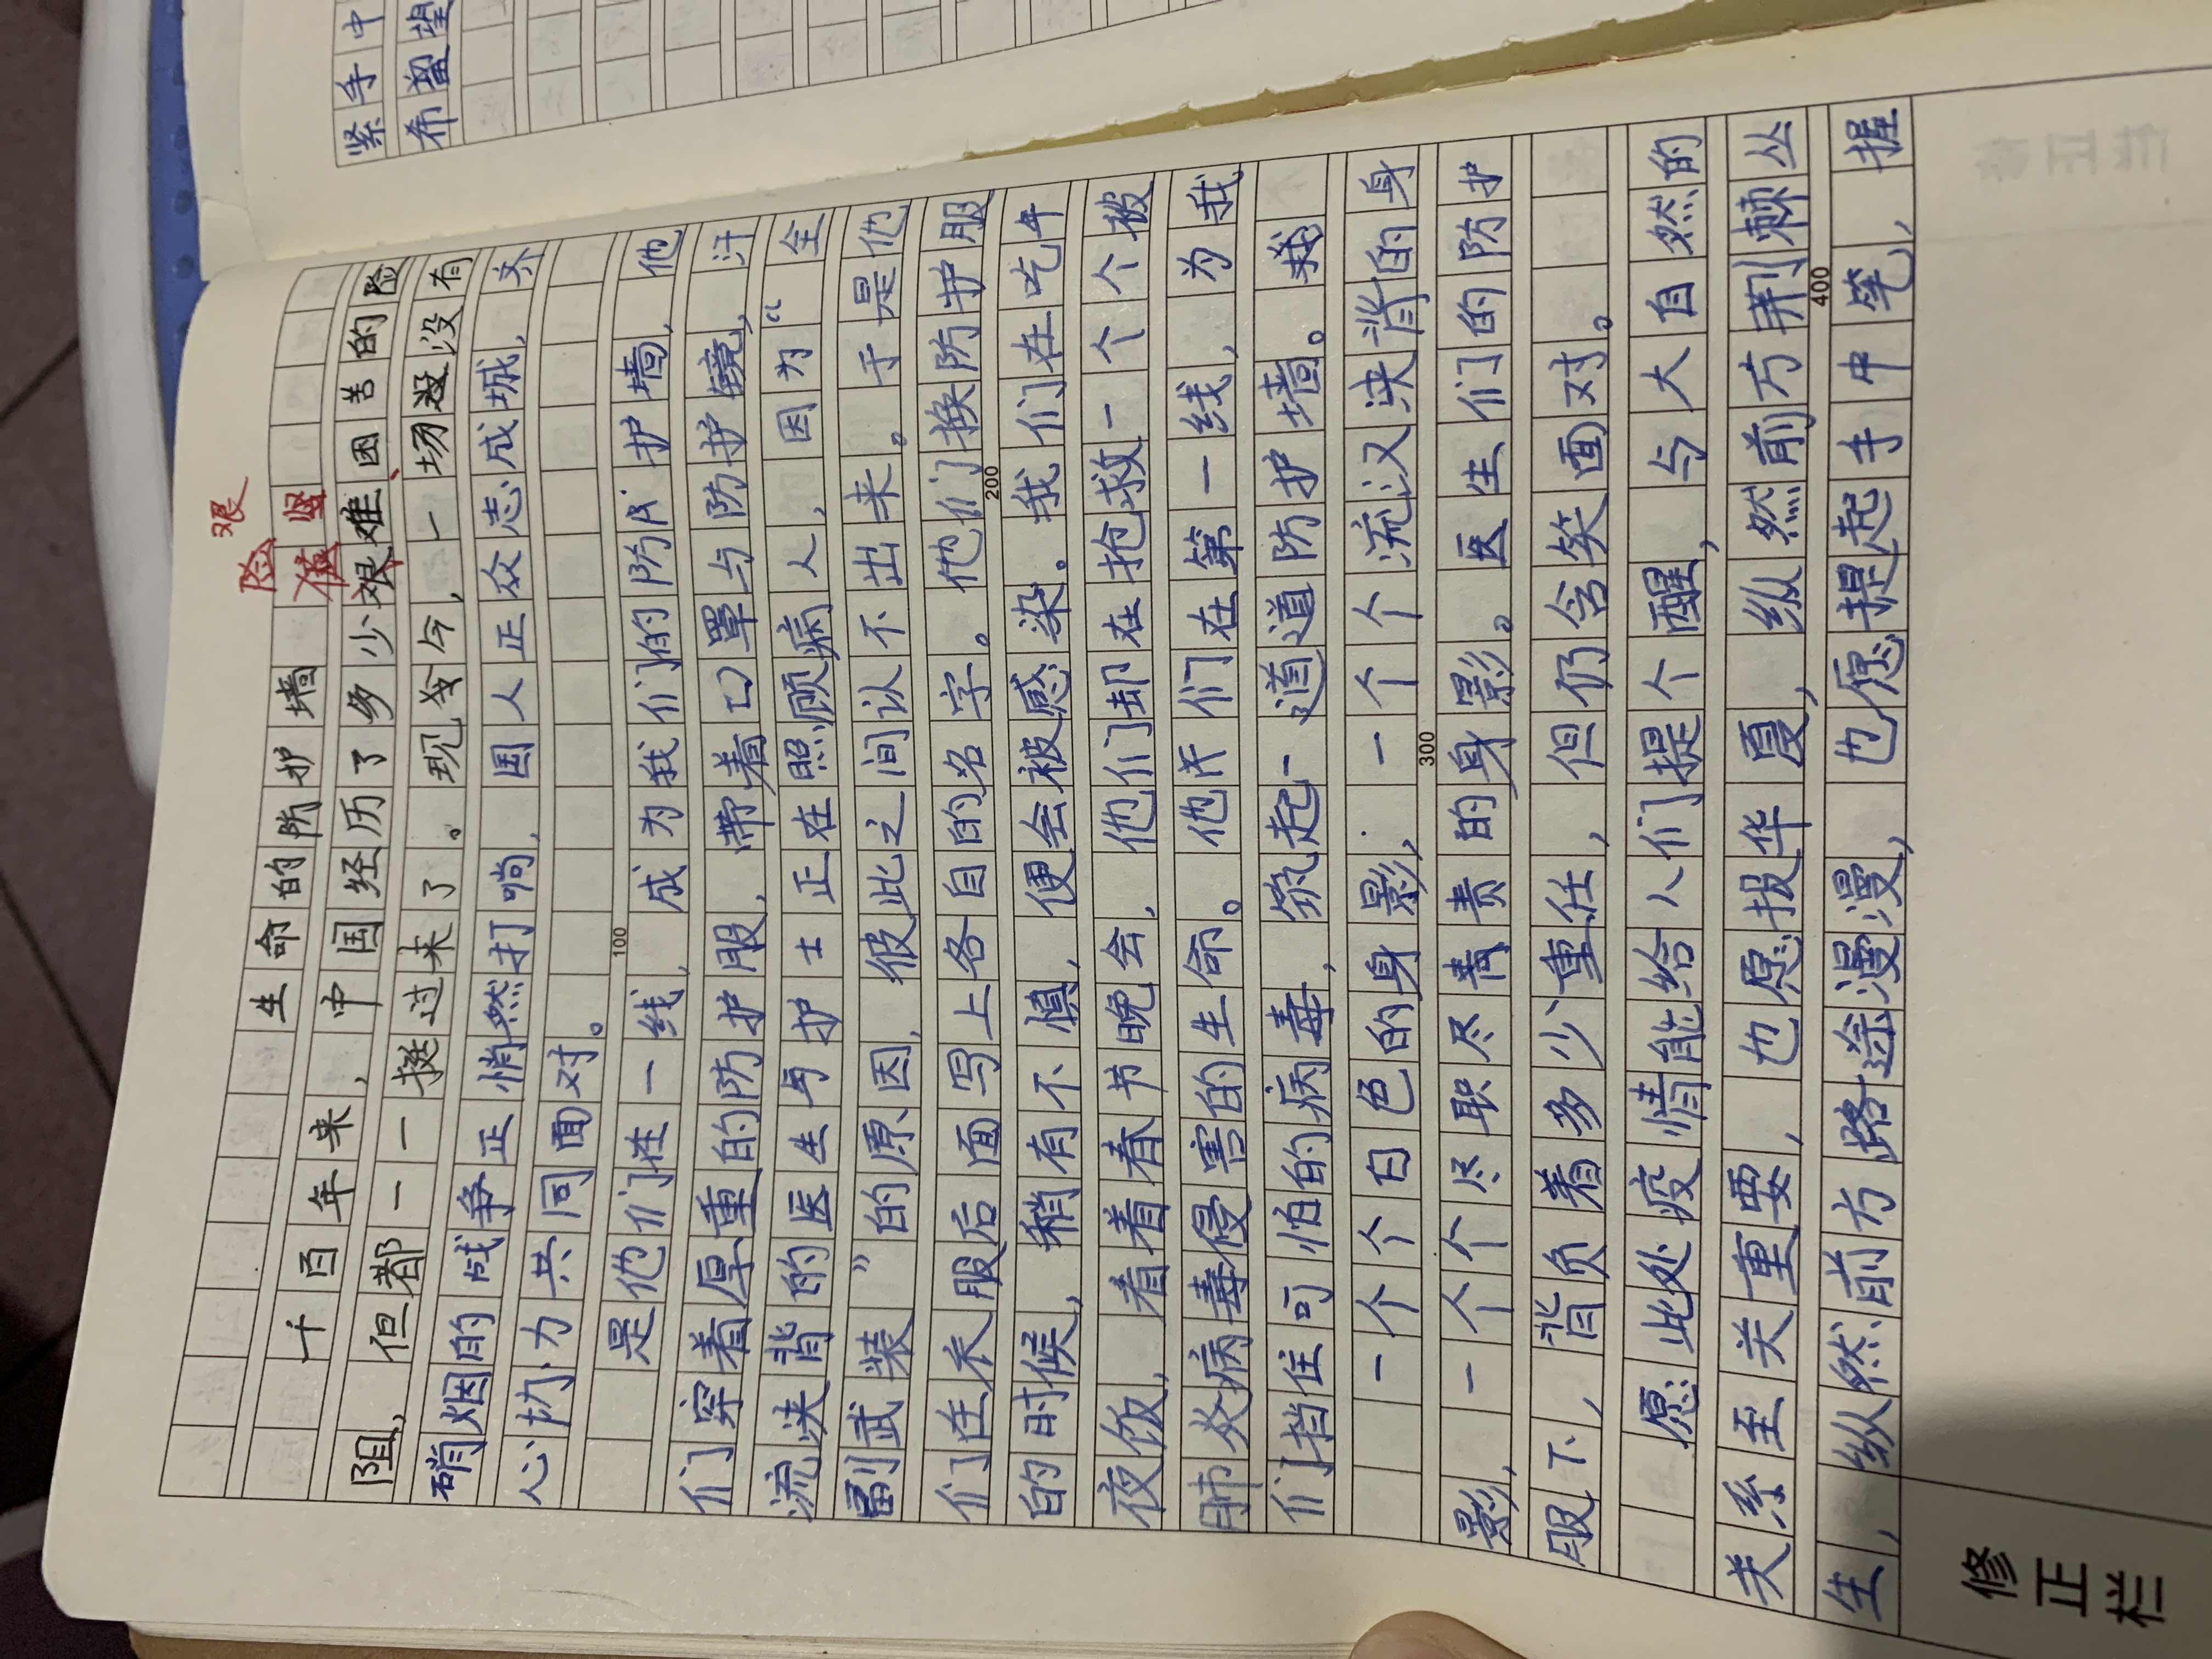 艰
险
值 坚
生命的防护墙
千百年来,中国经历了多少艰难困苦的险
阻,但都一一挺过来了。现今,一场没有
硝烟的战争正悄然打响,国人正众志成城,齐
心协力共同面对。
100
是他们在一线,成为我们的防护墙,他
们穿着厚重的防护服,带着口罩与防护镜,汗
流浃背的医生与护士正在照顾病人,因为“全
副武装”的原因,彼此之间认不出来。于是他
们在衣服后面写上各自的名字。他们换防护服
200
的时候,稍有不慎,便会被感染。我们在吃年
夜饭,看着春节晚会,他们却在抢救一个个被
肺炎病毒侵害的生命。他们在第一线,为我
们挡住可怕的病毒,筑起一道道防护墙。
一个个白色的身影,一个个流汉浃背的身
300
影,一个个尽职尽责的身影。医生们的防护
服下,背负着多少重任,但仍含笑面对。
愿此处疫情能给人们提个醒,与大自然的
关系至关重要,也愿报华夏,纵然前方荆棘丛
400
生,纵然前方路途漫漫,也愿提起手中笔,握
修正栏
紧手中
希望